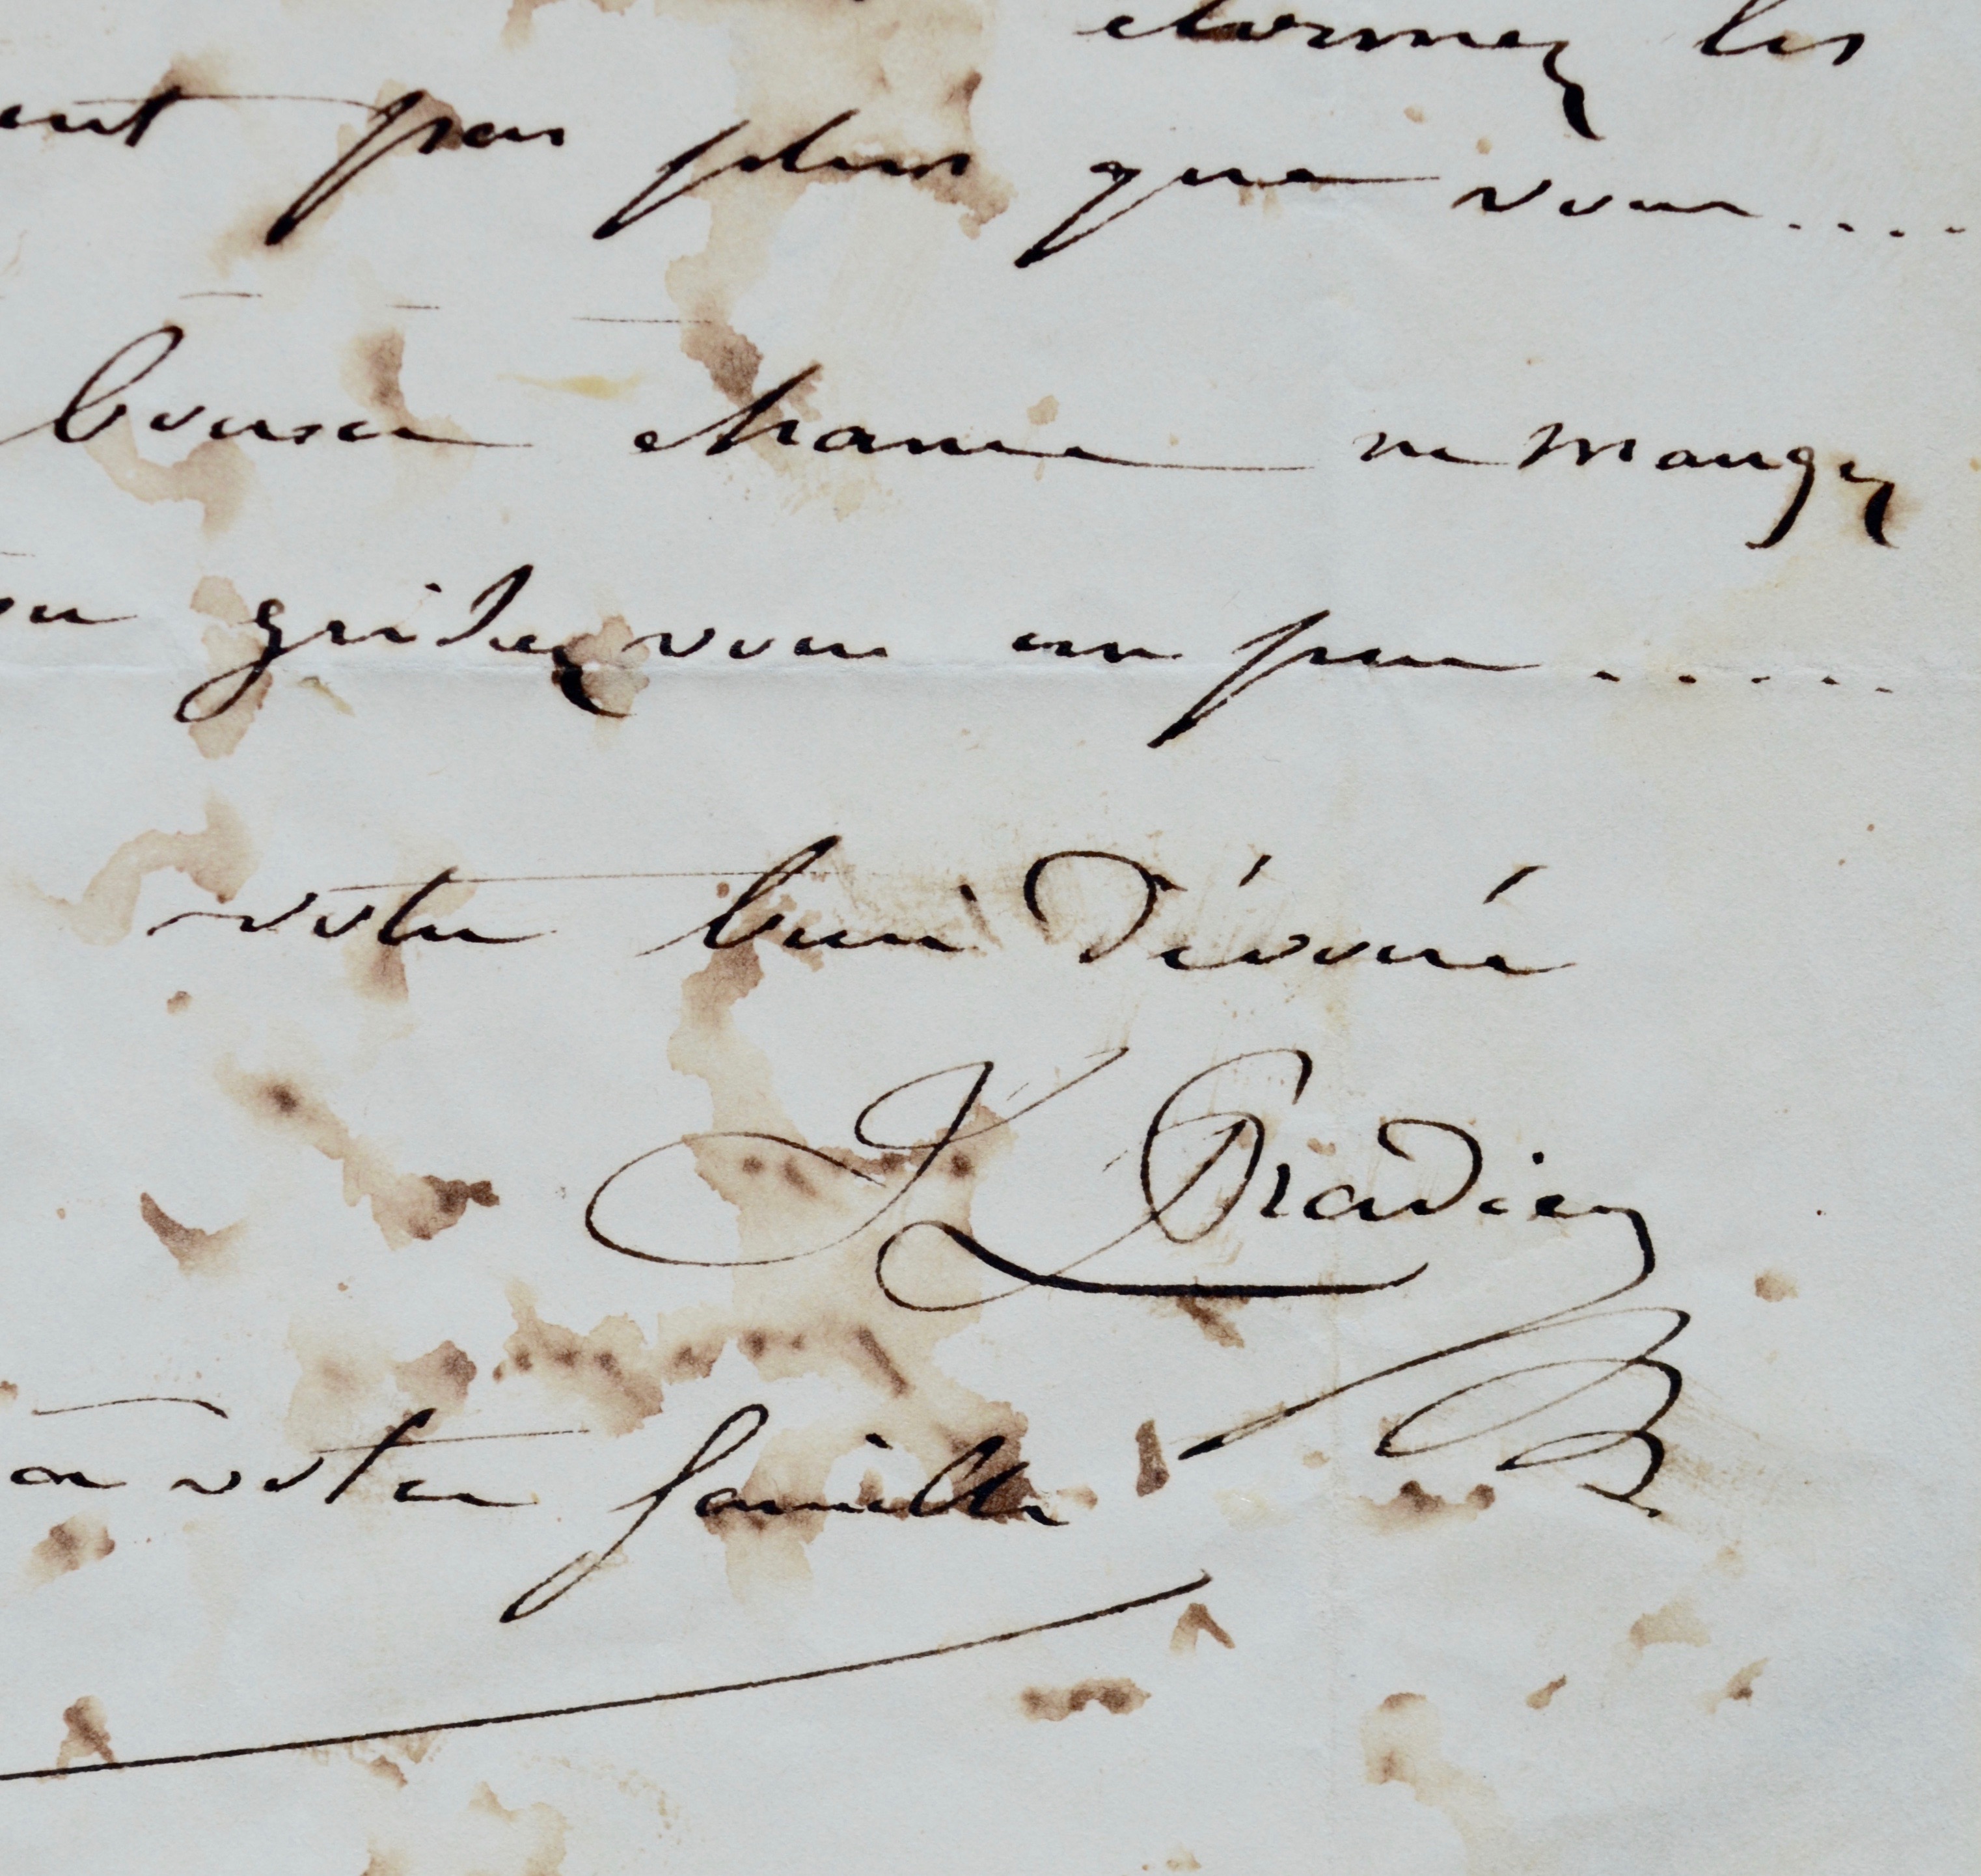 donnez les
ent pas plus que vous....
bonne chance ne mangez
ou gridez vous un peu.....
votre bien Dévoué
J Pradier
à votre famille